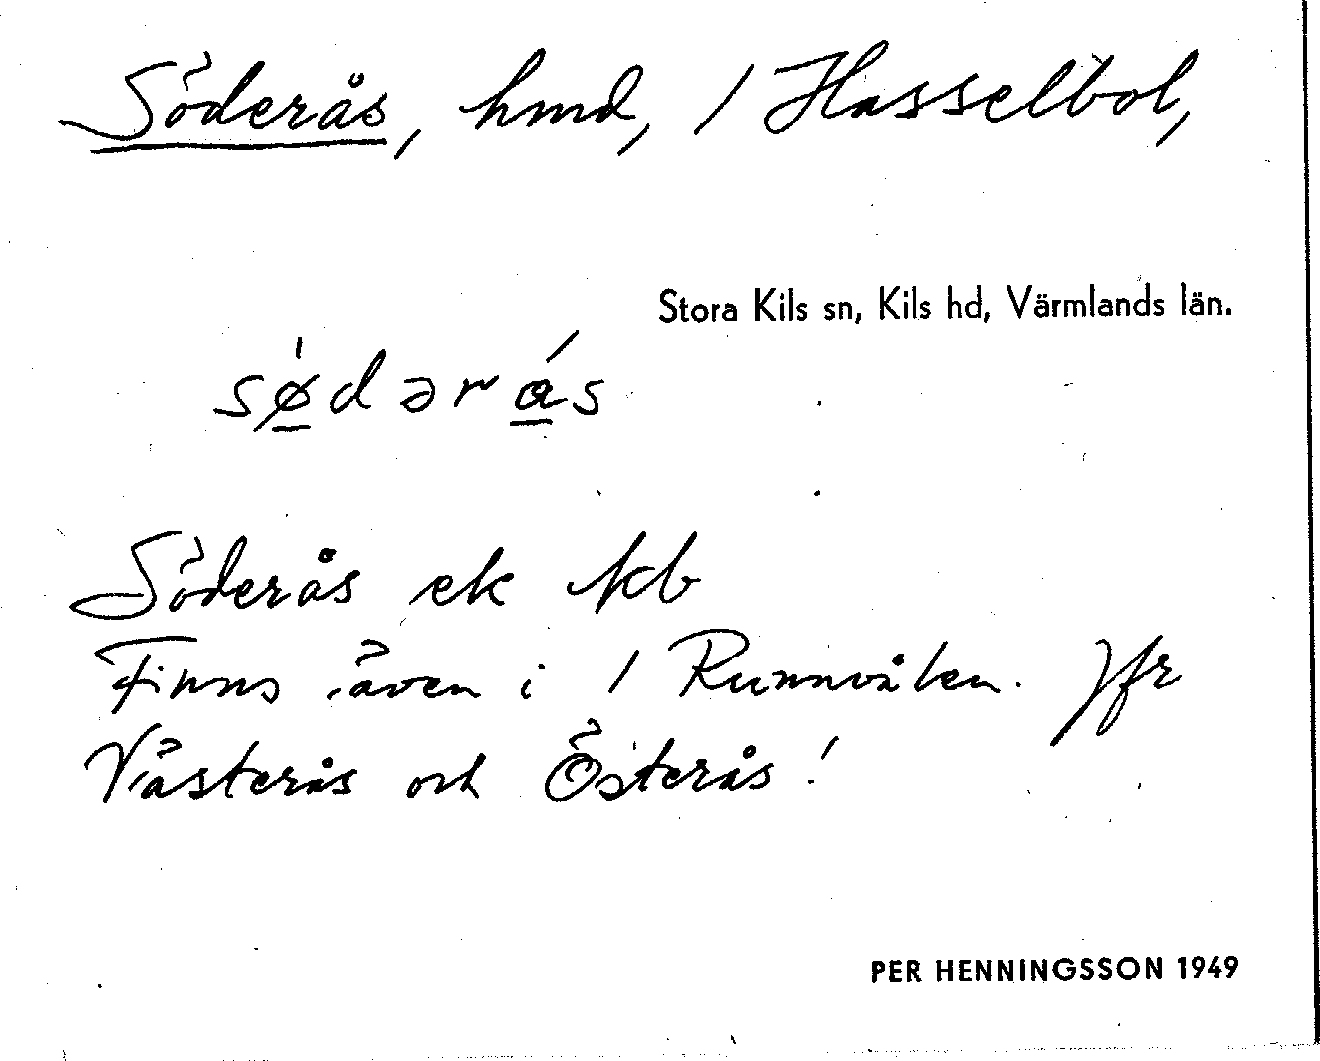 Söderås, hmd, / Hasselbol,
Stora Kils sn, Kils hd, Värmlands län.
sø̲dərå̲s
Söderås ek kb
Finns även i / Runnvålen. Jfr
Västerås och Österås!
PER HENNINGSSON 1949